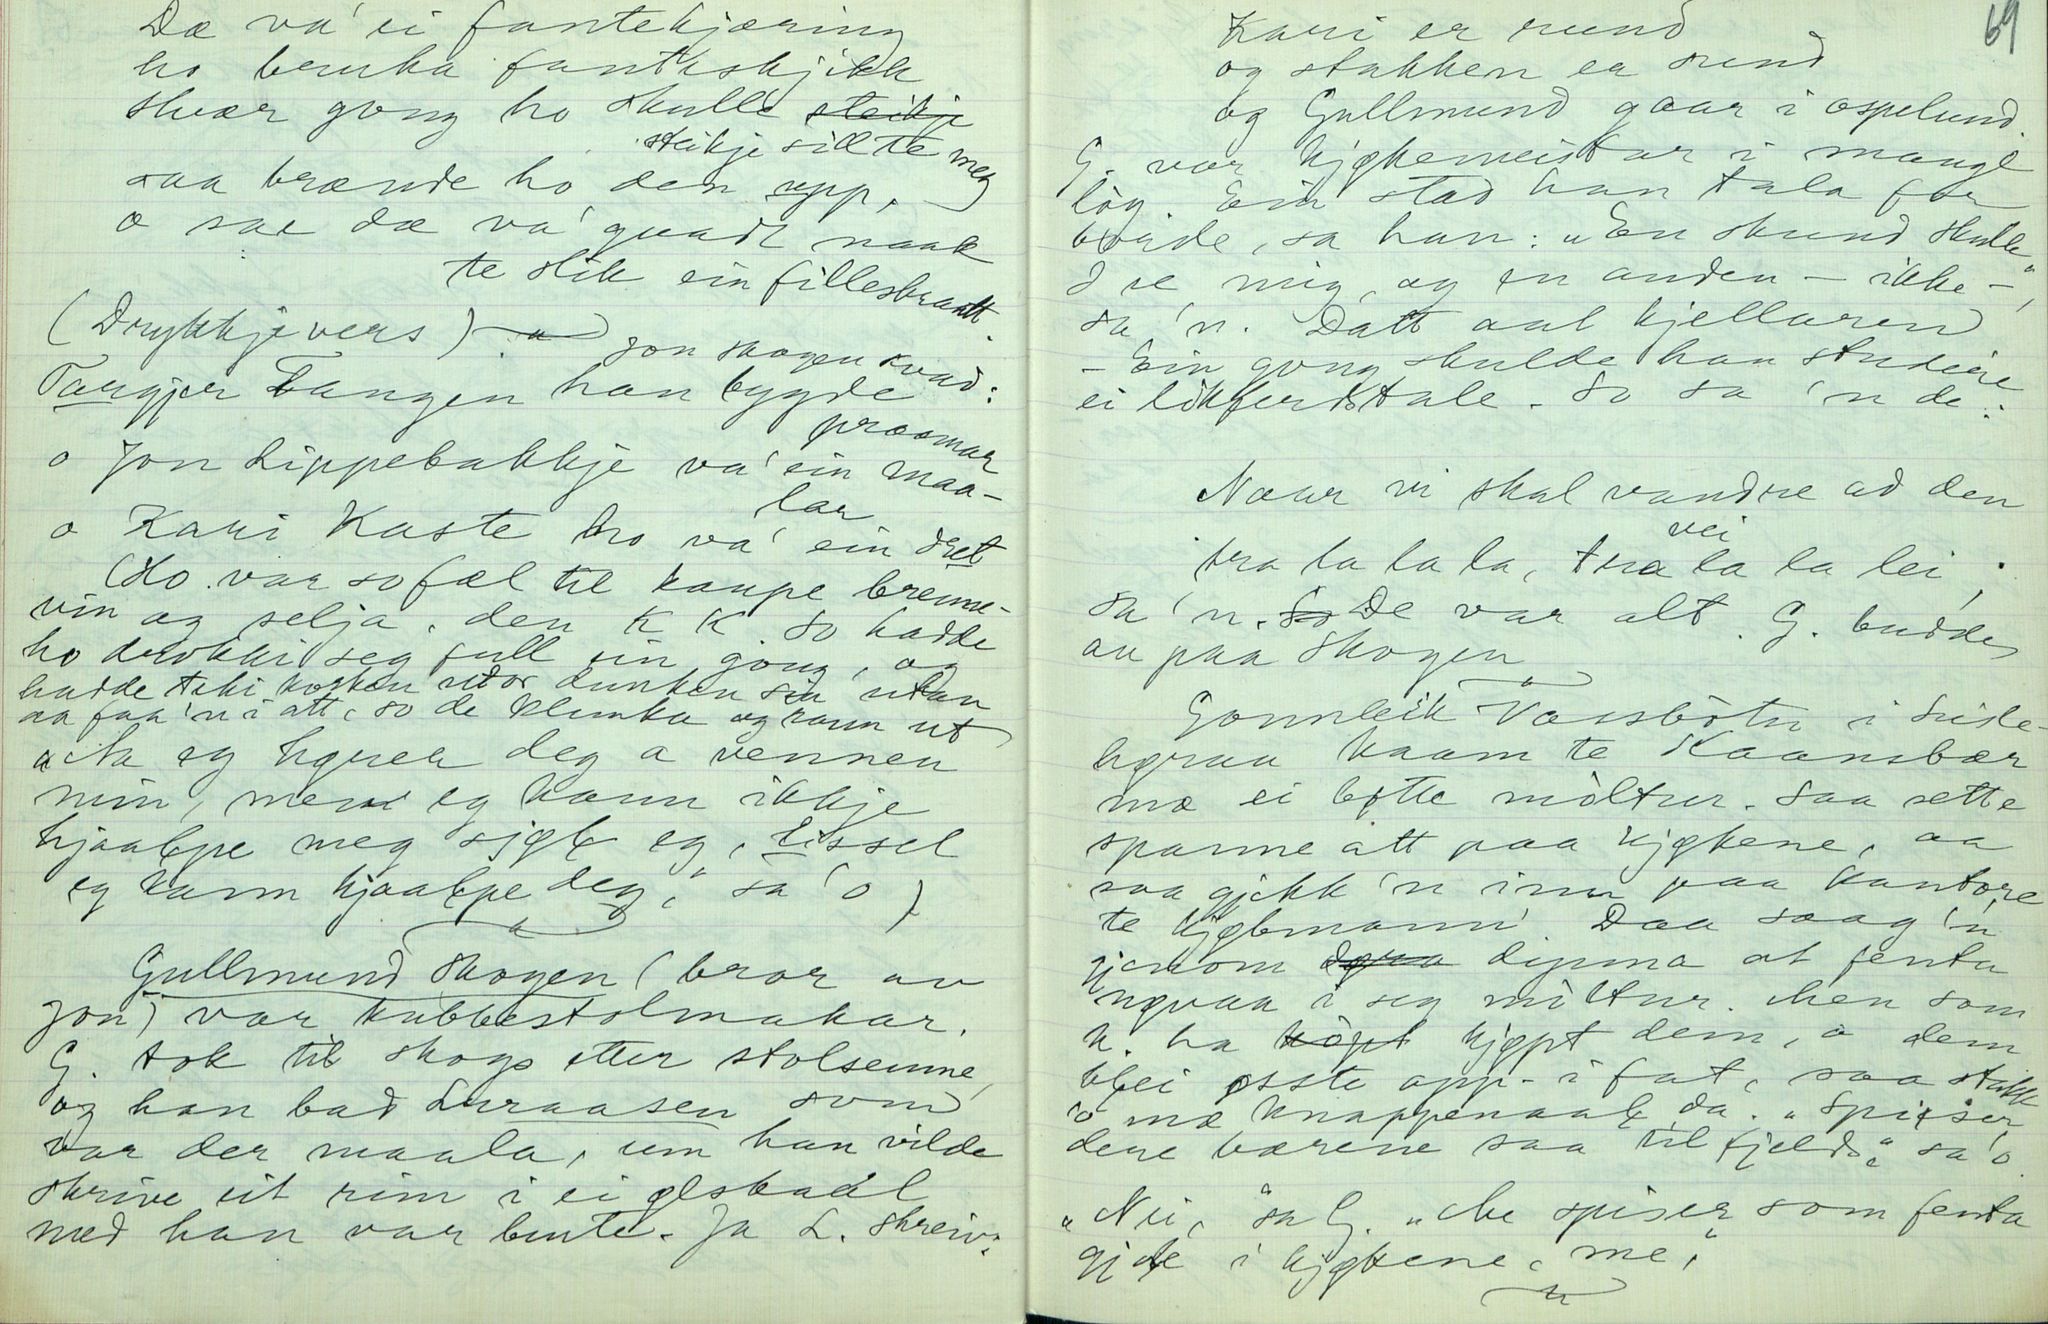 Dæ va' ei fantekjæring
ho bruka fanteskjikk
Hvær gong ho skulle steikje
steikje sill te meg
saa brænde ho den upp,
o sae dæ va' goadt naak
te slik ein fillesbrautt.
(Drykkjevers)
Jon Skogen kvad:
Targjer Tangen han bygde
præsmar
o Jon Lippebakkje va' ein maa-
lar
o Kari Kaste ho va' ein dræt
(Ho var so fæl til kaupe brenne-
vin og selja, den K K. So hadde
ho drokki seg full ein gong, og
hadde teki korken utor dunken sin utan
aa faa'n i att, so de klunka og rann ut
"Ja eg høyrer deg a vennen
min, men eg kann ikkje
hjaalpe meg sjøl eg, lissel
eg kann hjaalpe deg," sa 'o)
Gullmund Skogen (bror av
Jon) var kubbestolmakar.
G. tok til skogs etter stolsemne,
og han bad Luraasen som
var der maala, um han vilde
skrive eit rim i ei ølskaal
med han var burte. Ja L. skreiv:
69
Kari er rund
og stakken er rund
og Gullmund gaar i ospelund.
G. var kjøkemeistar i mange
lög. Ein stad han tala for
brude, sa han: "En stund skulle
I se mig, og en anden – ikke –,"
sa 'n. Datt aat kjellaren
– Ein gong skulde han studere
ei likferdstale. So sa 'n de:
Naar vi skal vandre ad den
vei
tra la la la, tra la la lei,
sa 'n. So De var alt. G. budde
au paa Skogen
Gonnleik Vaasbötn i Susle-
høraa kaam te Kaansbær
mæ ei bøtte möltur. Saa sette
spanne att paa kjøkene, aa
saa gjekk 'n inn paa kantore
te kjøbmann. Daa saag 'n
gjenom døra dynna at fenta
nøvaa i seg möltur. Men som
K. ha köpt kjøpt dem, o dem
blei øsste opp i fat, saa stakk
'o mæ knappenaal da. "Spiser
dere bærene saa til fjelds," sa'o.
"Nei," sa G. "Me spiser som fenta
gjæ i kjøkene, me."